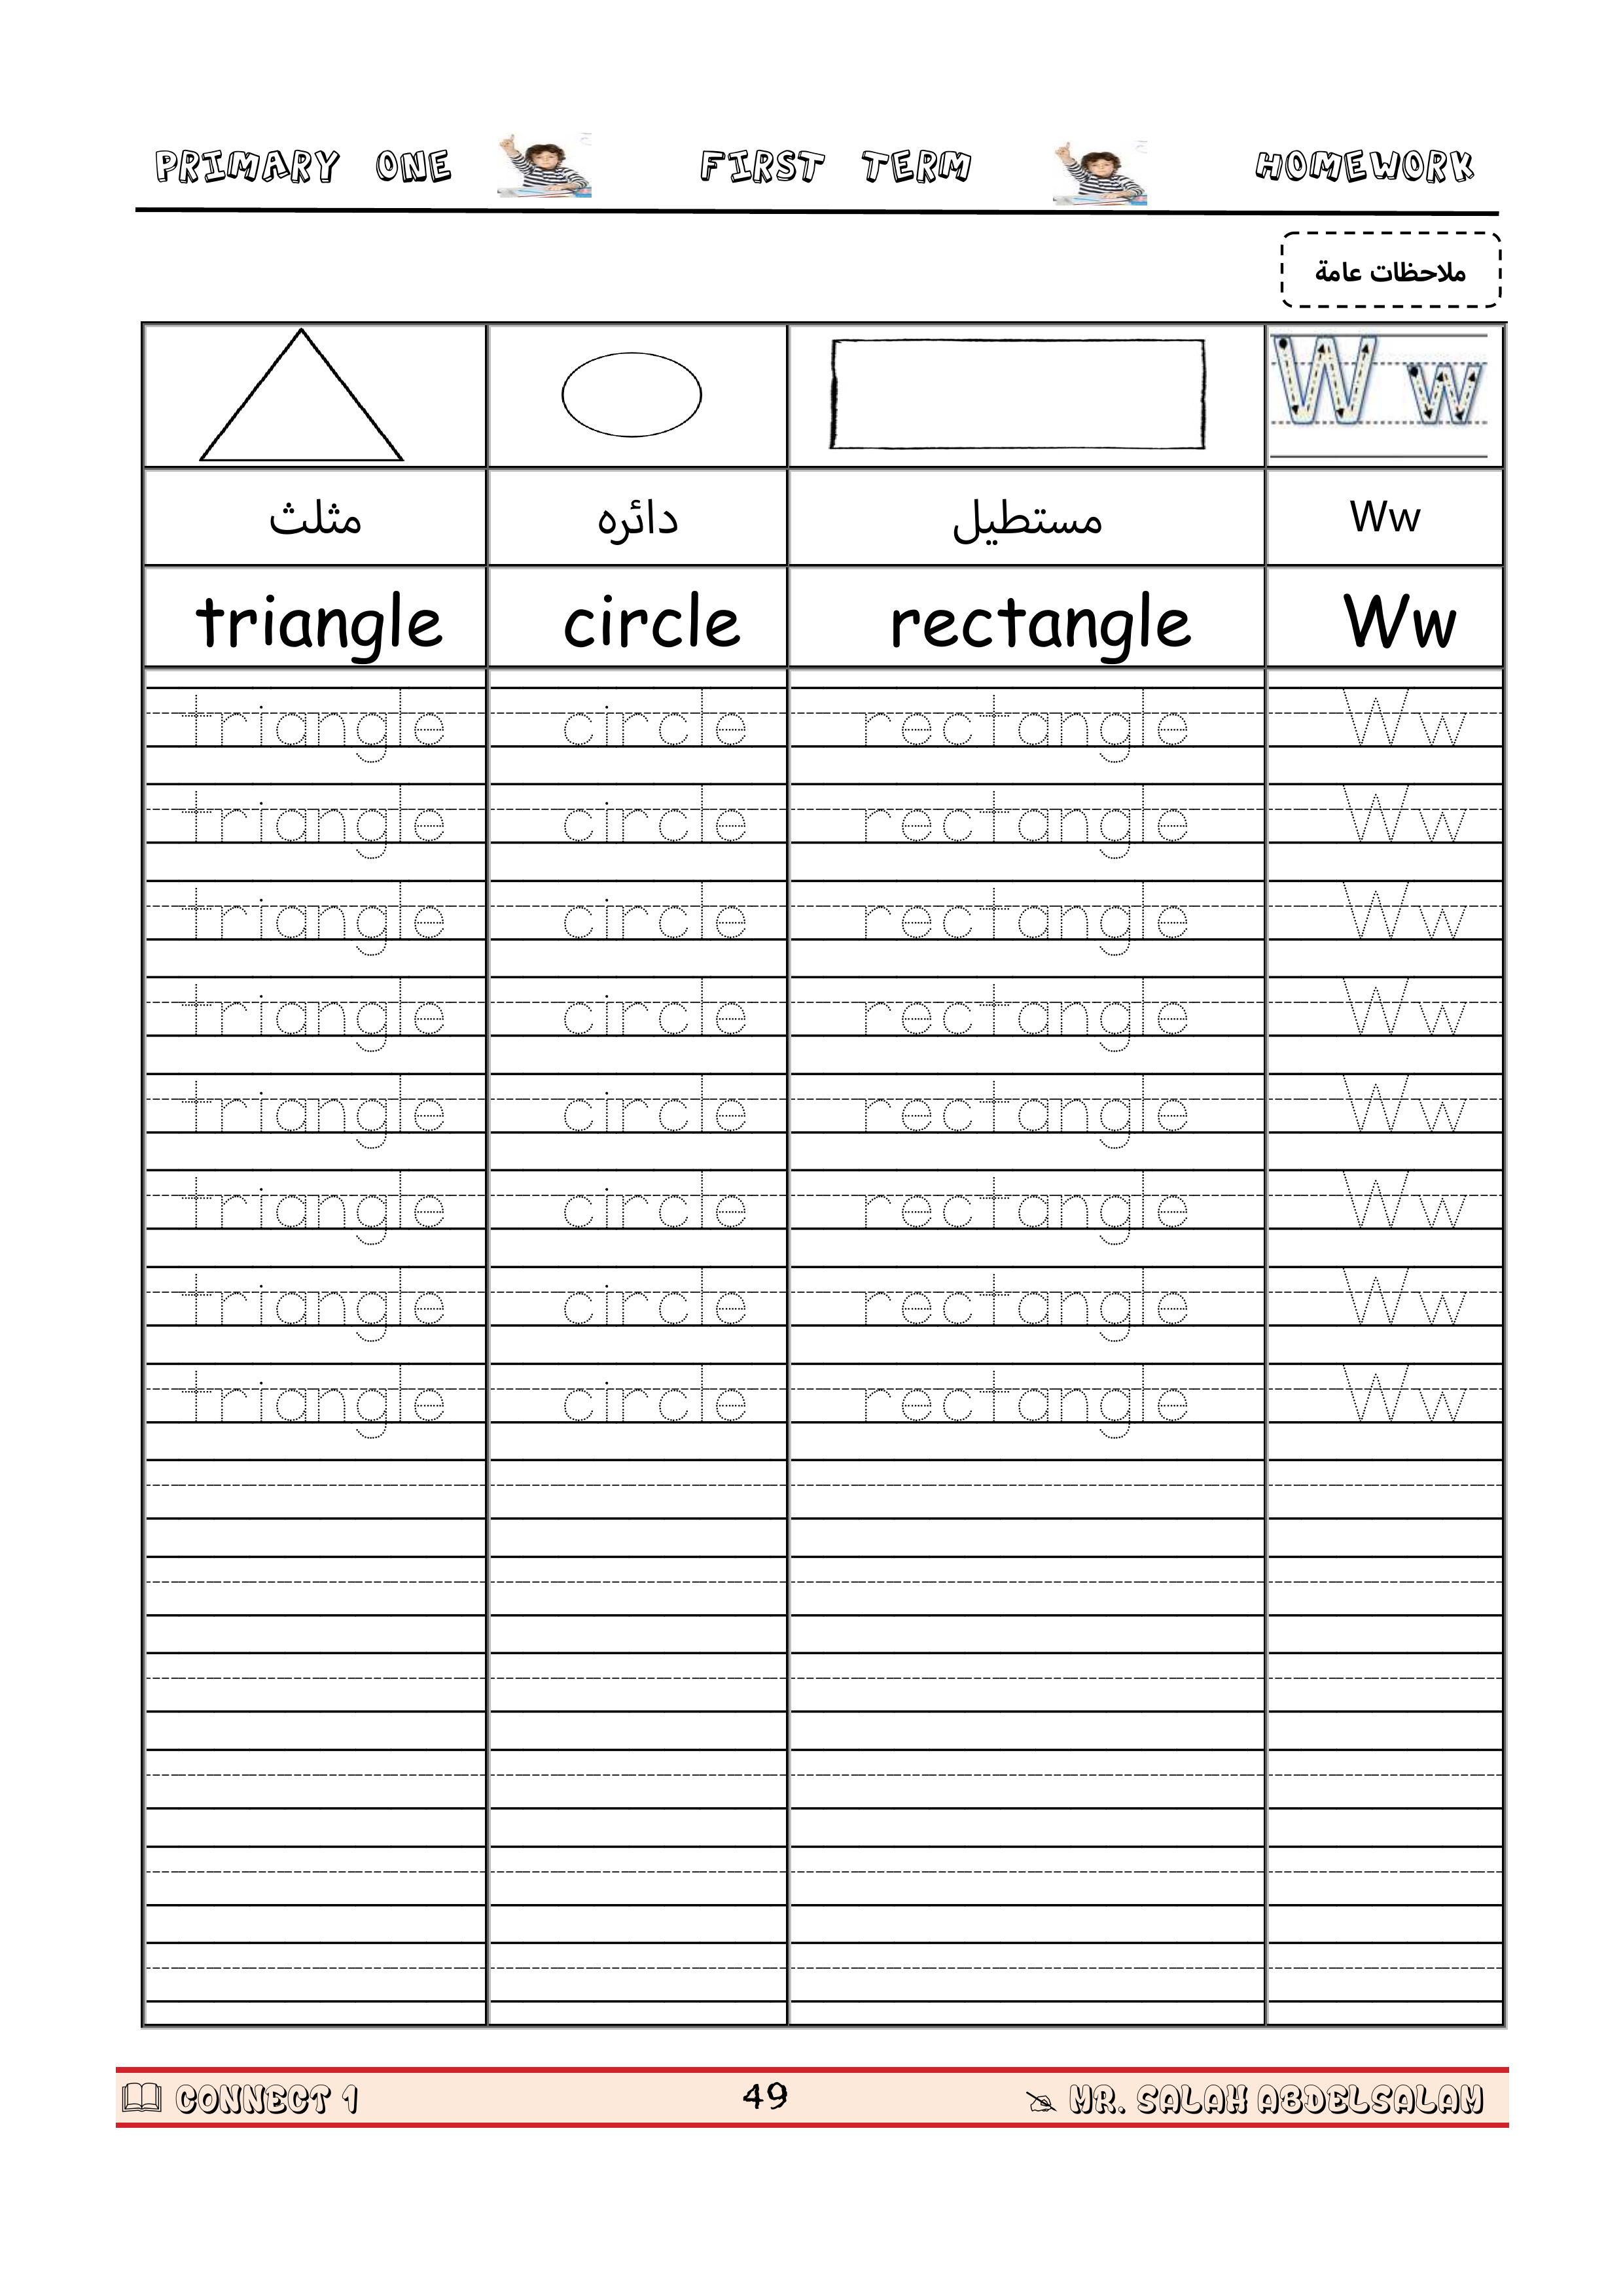 PRIMARY ONE FIRST TERM HOMEWORK
ملاحظات عامة
W w
مثلث دائره مستطيل Ww
triangle circle rectangle Ww
triangle circle rectangle Ww
triangle circle rectangle Ww
triangle circle rectangle Ww
triangle circle rectangle Ww
triangle circle rectangle Ww
triangle circle rectangle Ww
triangle circle rectangle Ww
triangle circle rectangle Ww
CONNECT 1 49 MR. SALAH ABDELSALAM